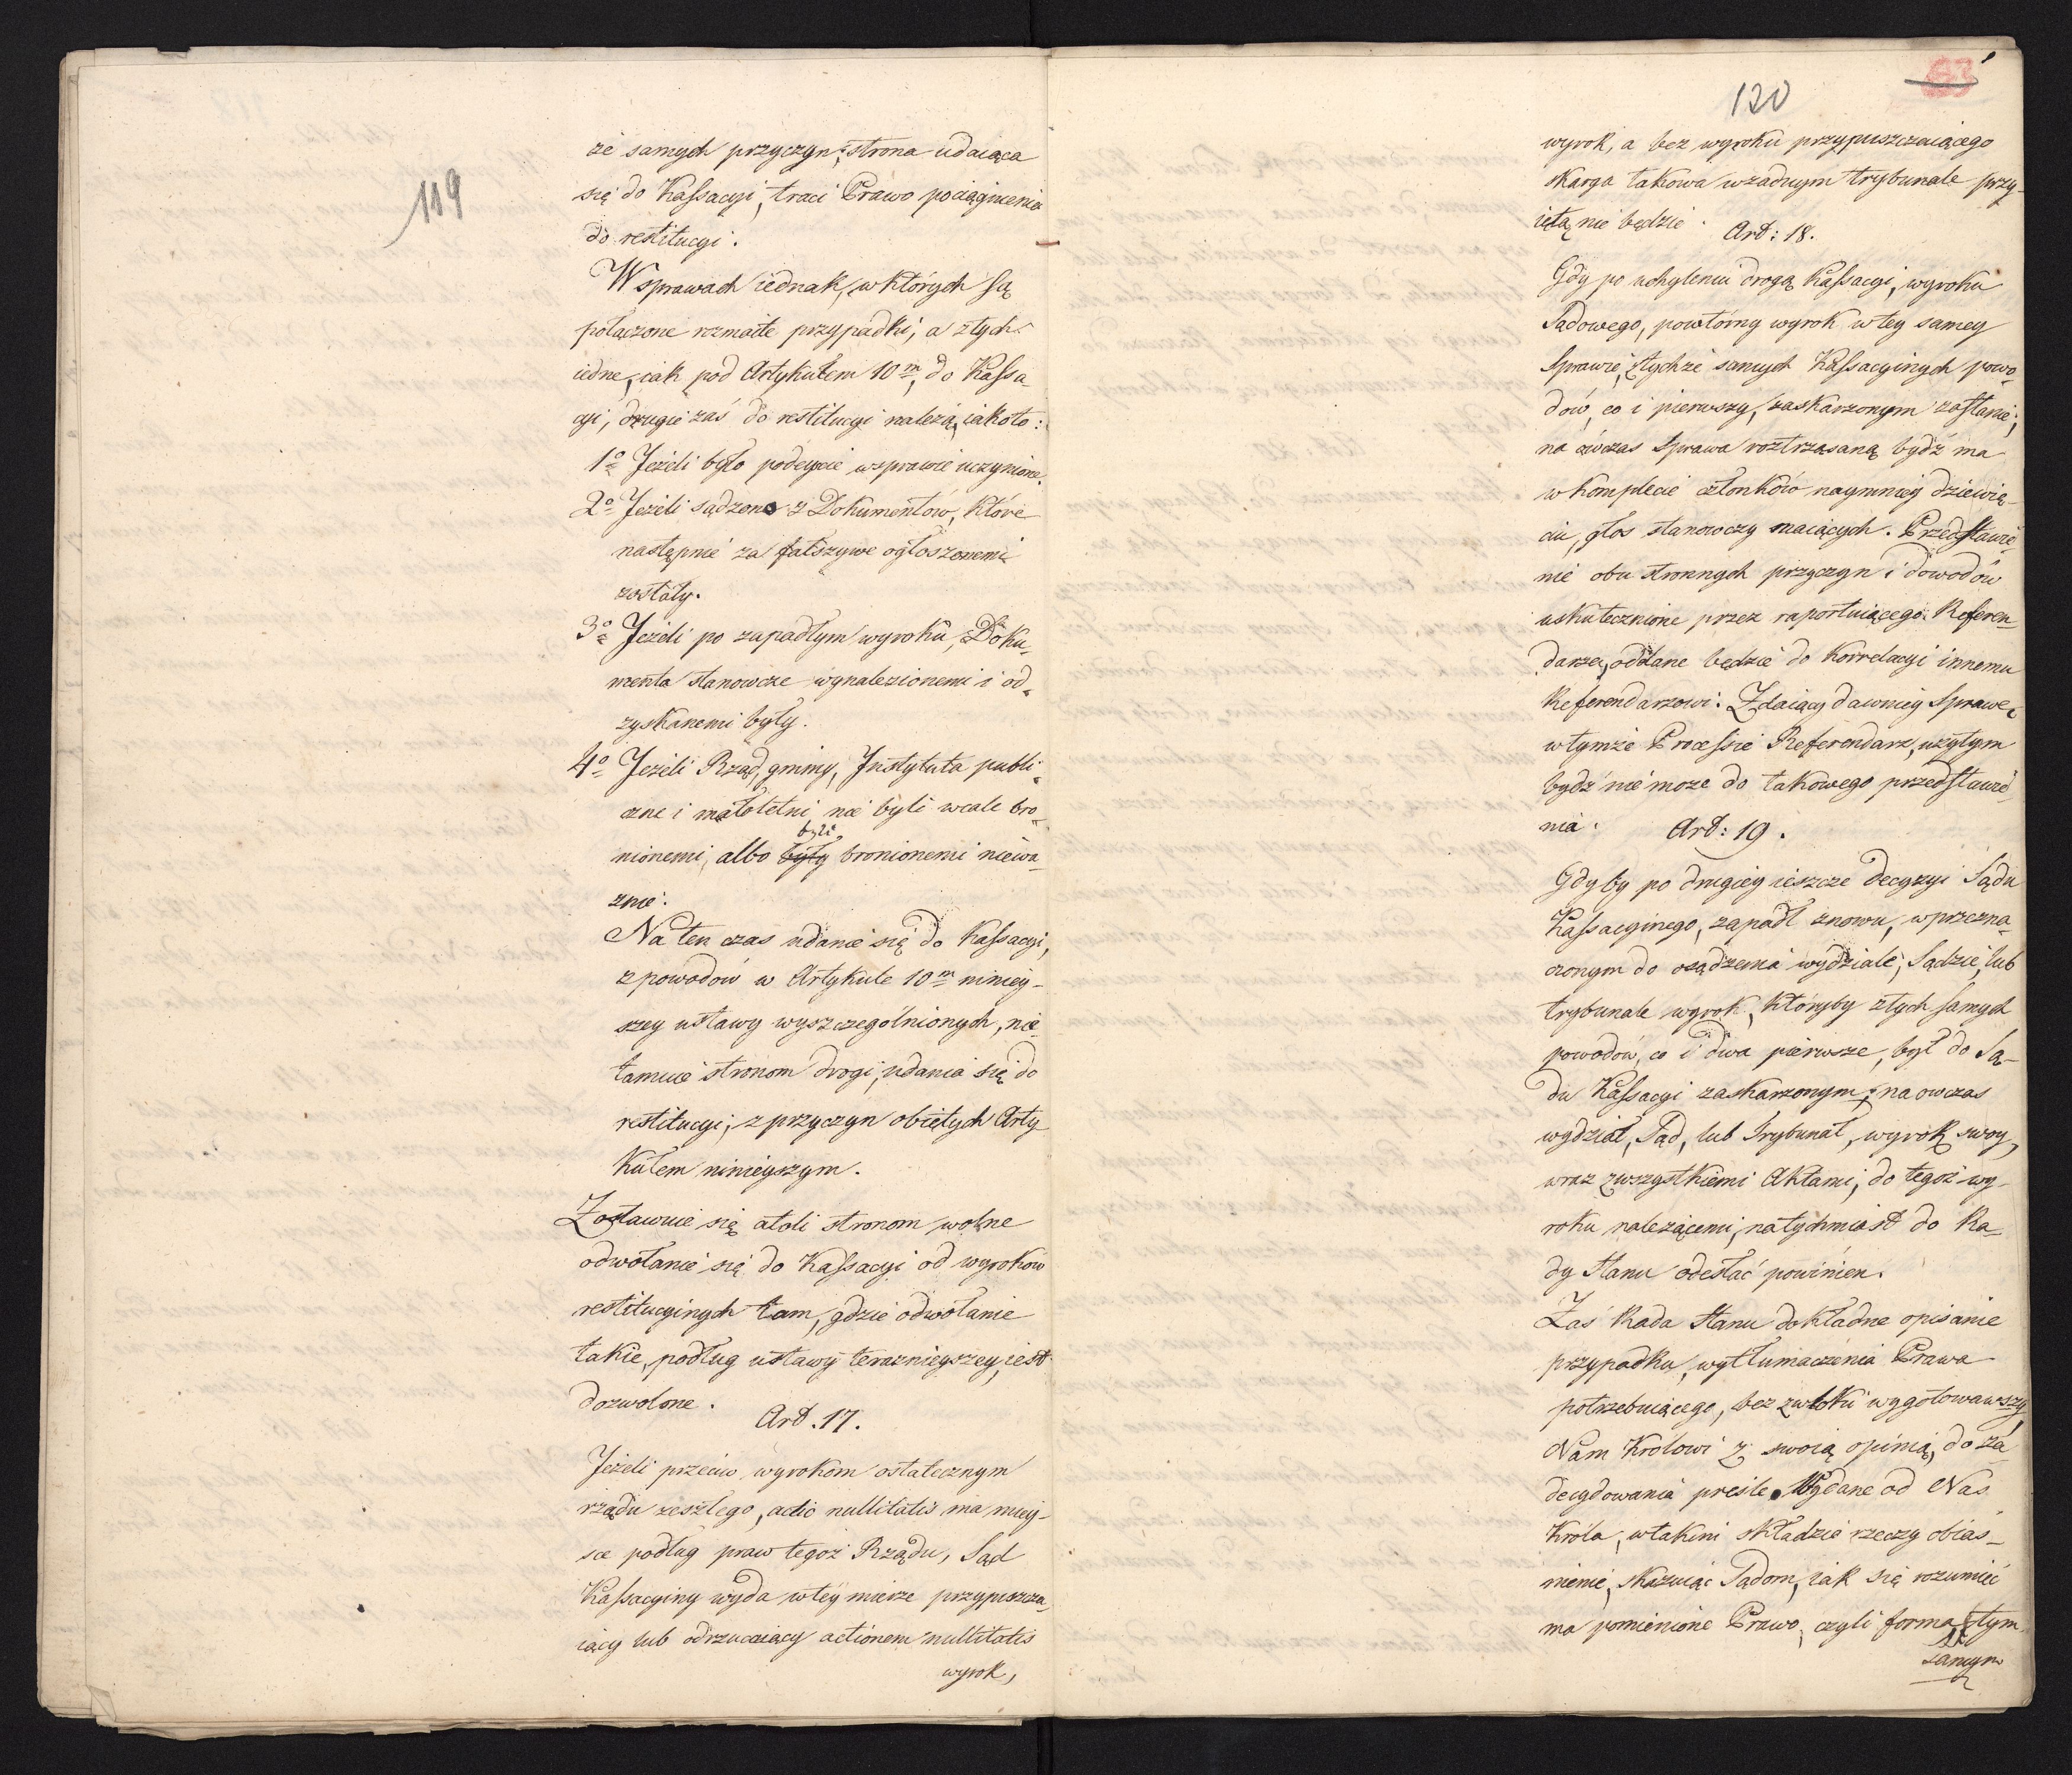 119
że samych przyczyn; strona udaiąca
się do Kassacyi, traci Prawo pociągnienia
do restitucyi.
W sprawach iednak, w których są
połączone rozmaite przypadki, a z tych
iedne, iak pod Artykułem 10m, do Kassa-
cyi, drugie zaś do restitucyi należą, iakoto:
1o Jeżeli było podeyście w sprawie uczynione.
2o Jeżeli sądzono z Dokumentów, które
następnie za fałszywe ogłoszonemi
zostały.
3o Jeżeli po zapadłym wyroku, Doku-
menta stanowcze wynalezionemi i od-
zyskanemi były.
4o Jeżeli Rząd, gminy, Instytuta publi-
czne i małoletni nie byli wcale bro-
byli
nionemi, albo były bronionemi nieważ-
znie.
Na ten czas udanie się do Kassacyi,
z powodów w Artykule 10m niniey-
szey ustawy wyszczególnionych, nie
tamuie stronom drogi, udania się do
restitucyi, z przyczyn obiętych Arty-
kułem ninieyszym.
Zostawuie się atoli stronom wolne
odwołanie się do Kassacyi od wyroków
restitucyinych tam, gdzie odwołanie
takie, podług ustawy teraznieyszey, iest
dozwolone.
Art. 17.
Jeżeli przeciw wyrokom ostatecznym
rządu zeszłego, actio nullitatis ma miey-
sce podług praw tegoż Rządu, Sąd
Kassacyiny wyda w tey mierze przypuszcza-
iący lub odrzucaiący actionem nullitatis
wyrok,
120
wyrok, a bez wyroku przypuszczaiącego
skarga takowa w żadnym trybunale przy-
iętą nie będzie.
Art: 18.
Gdy po uchyleniu drogą Kassacyi, wyroku
Sądowego, powtórny wyrok w tey samey
Sprawie, z tychże samych Kassacyinych powo-
dów, co i pierwszy, zaskarżonym zostanie;
na ówczas Sprawa roztrząsaną bydź ma
w komplecie członków naymniey dziewię-
ciu, głos stanowczy maiących. Przedstawie-
nie obu stronnych przyczyn i dowodów
uskutecznione przez raportuiącego Referen-
darza, oddane będzie do Korrelacyi innemu
Referendarzowi: Zdaiący dawniey Sprawę
w tymże Processie Referendarz, użytym
bydź nie może do takowego przedstawie-
nia.
Art: 19.
Gdyby po drugiey ieszcze decyzyi Sądu
Kassacyinego, zapadł znowu, w przezna-
czonym do osądzenia wydziale, Sądzie, lub
trybunale wyrok, któryby z tych samych
powodów, co i dwa pierwsze, był do Są-
du Kassacyi zaskarżonym; na owczas
wydział, Sąd, lub Trybunał, wyrok swoy,
wraz z wszystkiemi Aktami, do tegoż wy-
roku należącemi, natychmiast do Ra-
dy Stanu odesłać powinien.
Zaś Rada Stanu dokładne opisanie
przypadku, wytłumaczenia Prawa
potrzebuiącego, bez zwłoki wygotowawszy
Nam Królowi z swoią opinią, do za-
decydowania prześle. Wydane od Nas
Króla, w takim składzie rzeczy obias-
nienie, skazuiąc Sądom, iak się rozumieć
ma pomienione Prawo, czyli forma, tym
samym